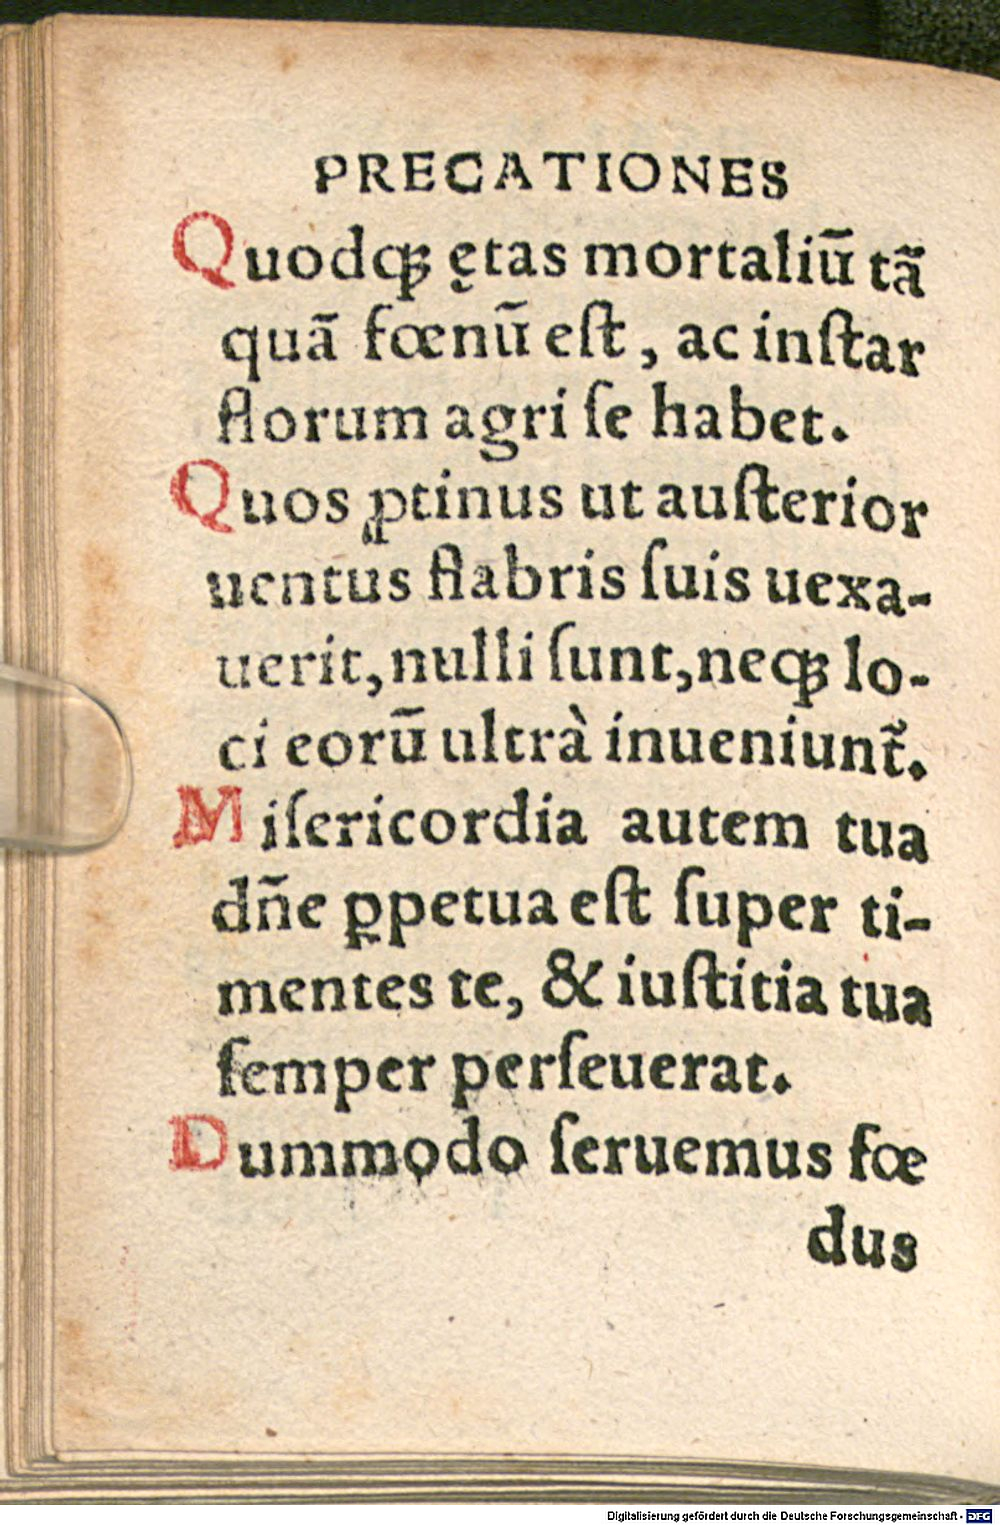 PRECATIONES
Quodqꝫ ętas mortaliū tā
quā fœnū eſt, ac inſtar
florum agri ſe habet.
Quos ꝓtinus ut auſterior
uentus flabris ſuis uexa-
uerit, nulli ſunt, neqꝫ lo-
ci eorū ultrà inueniunt᷑.
Miſericordia autem tua
dñe ꝑpetua eſt ſuper ti-
mentes te, & iuſtitia tua
ſemper perſeuerat.
Dummodo ſeruemus fœ
dus
Digitalisierung gefördert durch die Deutsche Forschungsgemeinschaft - DFG